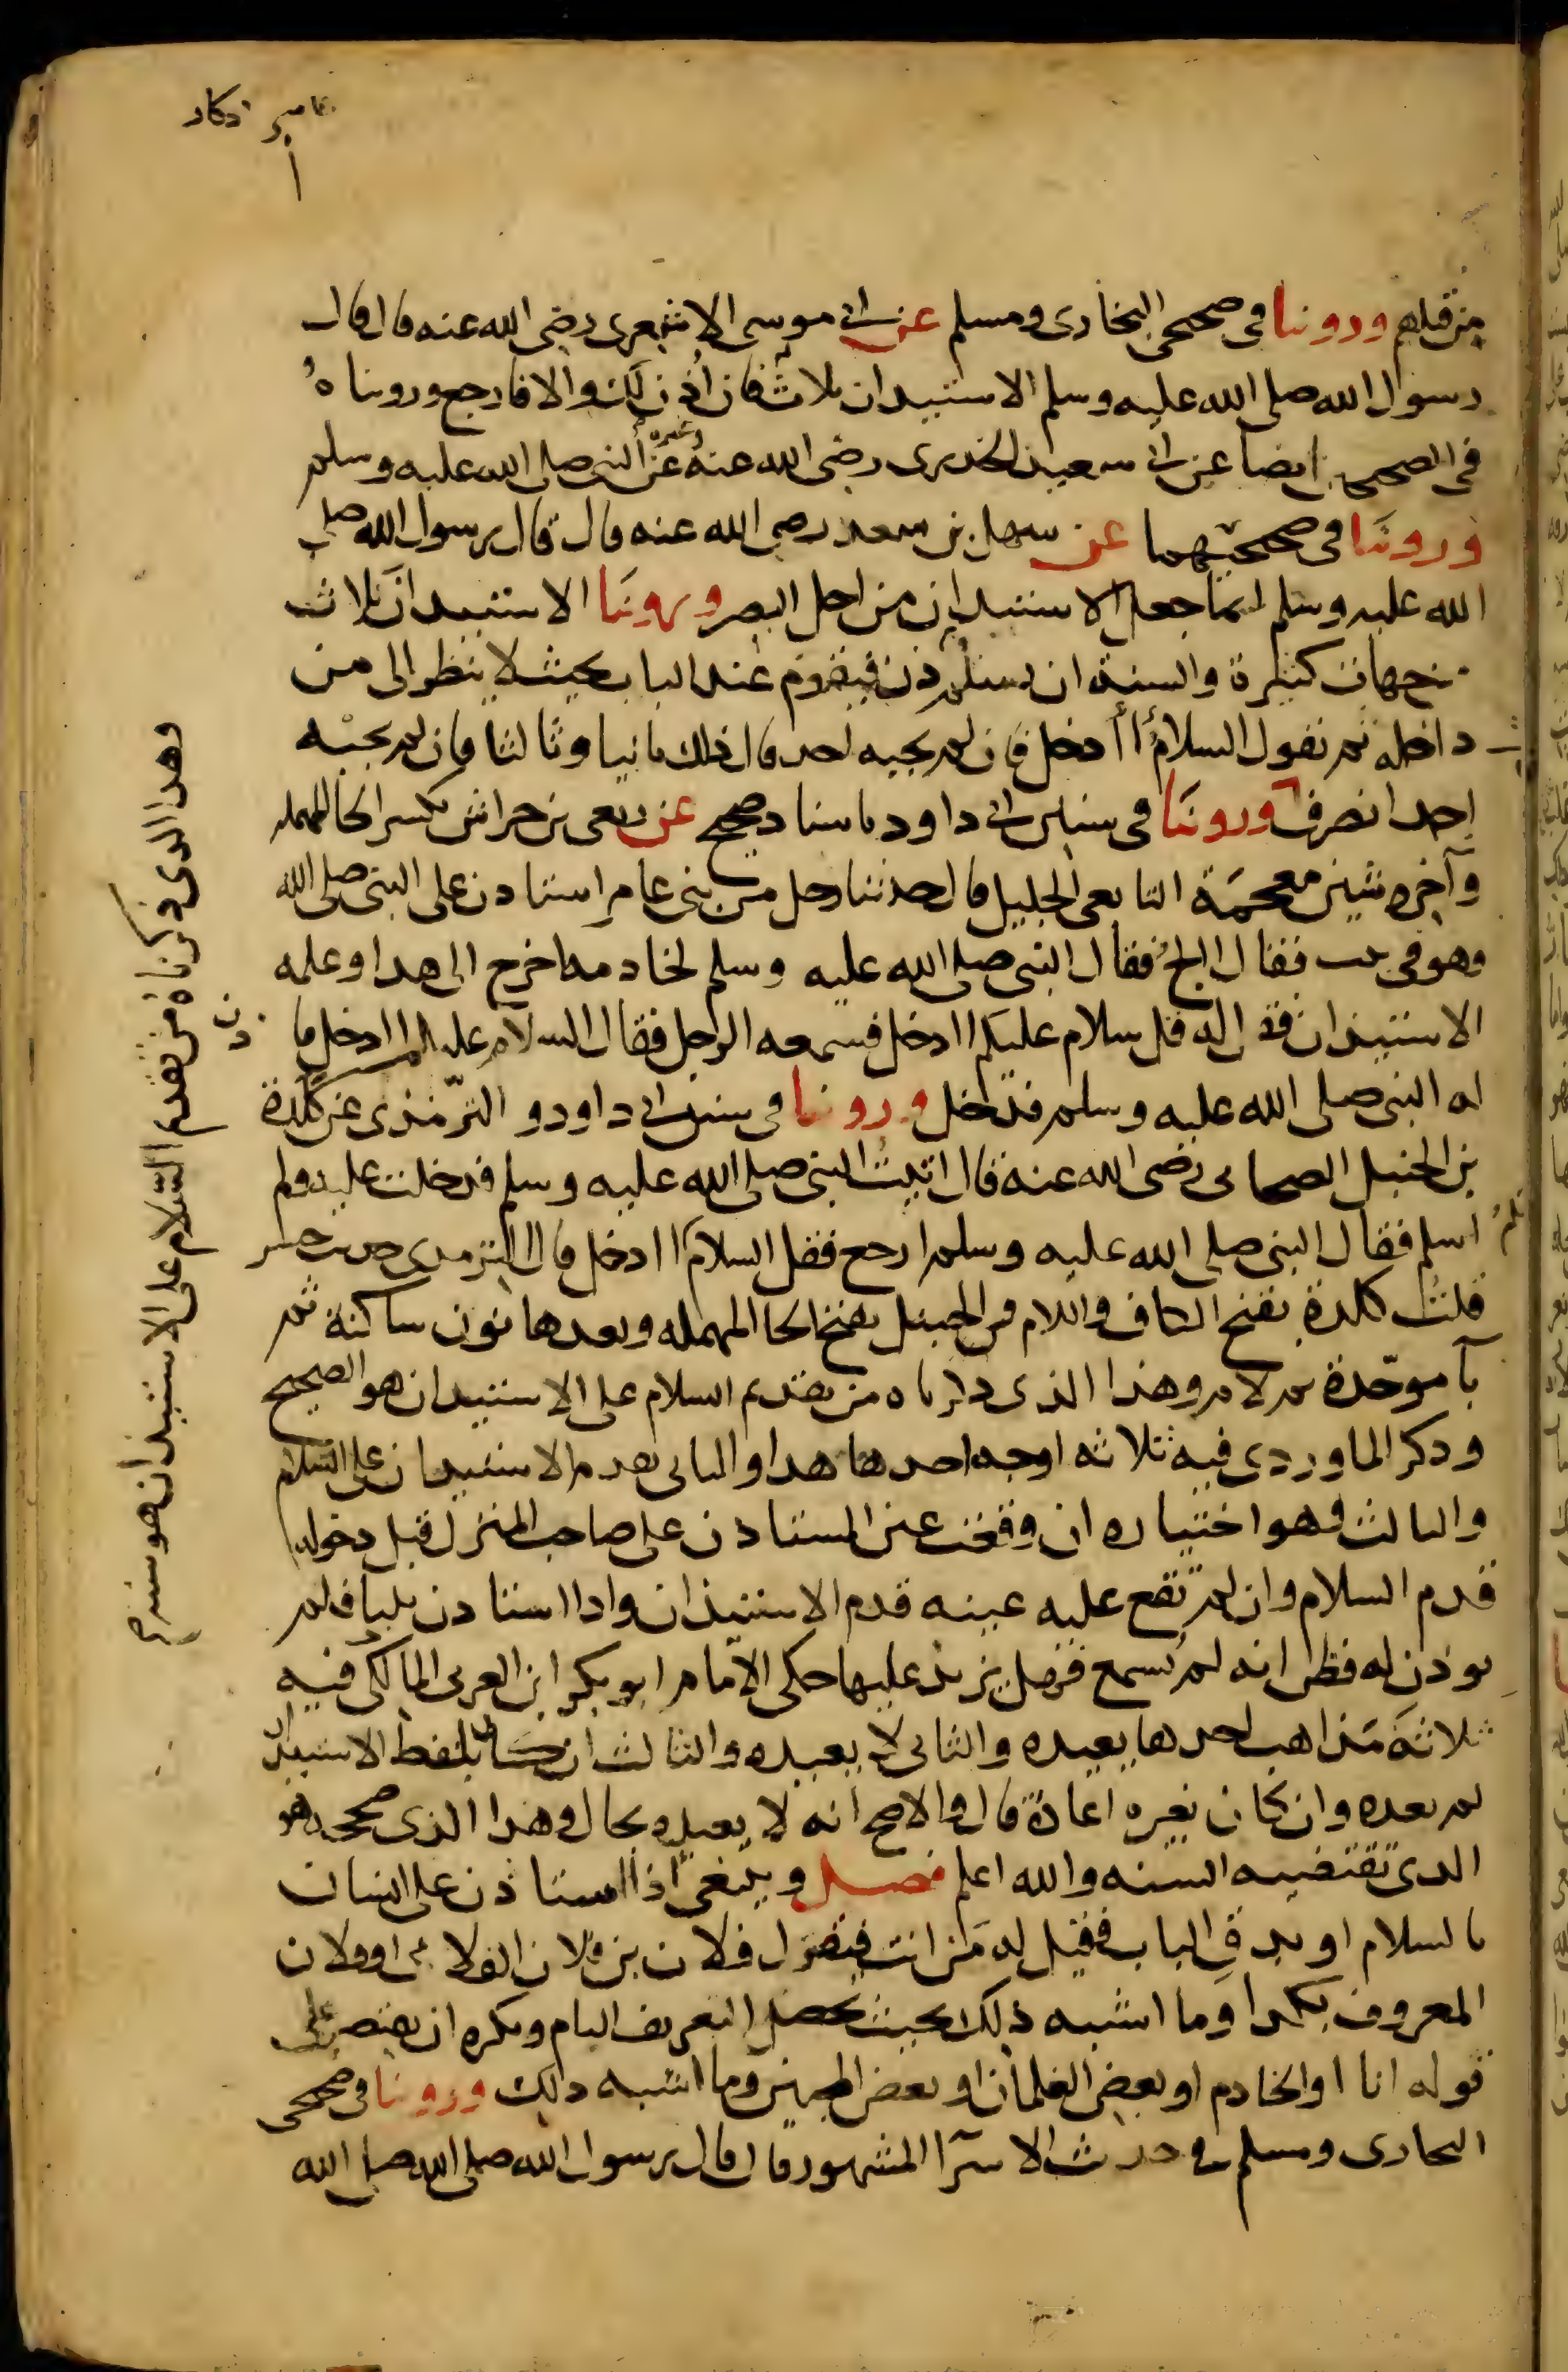 من قبلهم وروينا في صحيحي البخاري ومسلم عن ابي موسى الاشعري رضي الله عنه قال قال
رسول الله صلى الله عليه وسلم الاستيذان ثلاث فان اذن لك والا فارجع ورويناه
في الصحيحين ايضا عن ابي سعيد الخدري رضي الله عنه وغيره عن النبي صلى الله عليه وسلم
وروينا في صحيحيهما عن سهل بن سعد رضي الله عنه قال قال رسول الله صلى
الله عليه وسلم انما جعل الاستيذان من اجل البصر وروينا الاستيذان ثلاث
من جهات كثيرة والسنة ان يسلم ثم يستاذن فيقوم عند الباب بحيث لا ينظر الى من
داخله ثم يقول السلام أادخل فان لم يجبه احد قال ذلك ثانيا وثالثا فان لم يجبه
احد انصرف وروينا في سنن ابي داود باسناد صحيح عن ربعي بن حراش بكسر الحا المهمله
وآخره شين معجمة التابعي الجليل قال حدثنا رجل من بني عامر استاذن على النبي صلى الله
وهو في بيت فقال االج فقال النبي صلى الله عليه وسلم لخادمه اخرج الى هذا وعلمه
الاستيذان فقال له قل سلام عليكم اادخل فسمعه الرجل فقال السلام عليكم اادخل فا
ذن
له النبي صلى الله عليه وسلم فدخل وروينا في سنن ابي داود والترمذي عن كلدة
بن الحنبل الصحابي رضي الله عنه قال اتيت النبي صلى الله عليه وسلم فدخلت عليه ولم
اسلم فقال النبي صلى الله عليه وسلم ارجع فقل السلام اادخل قال الترمذي حديث حسن
قلت كلدة بفتح الكاف واللام والحنبل بفتح الحا المهمله وبعدها نون ساكنة ثم
بآ موحدة ثم لام وهذا الذي ذكرناه من تقديم السلام على الاستيذان هو الصحيح
وذكر الماوردي فيه ثلاثه اوجه احدها هذا والثاني تقديم الاستيذان على السلام
والثالث وهو اختياره ان وقعت عين المستاذن على صاحب المنزل قبل دخوله
قدم السلام وان لم تقع عليه عينه قدم الاستيذان واذا استاذن ثلثا فلم
يوذن له فظن انه لم يسمع فهل يزيد عليها حكى الامام ابو بكر ابن العربي المالكي فيه
ثلاثة مذاهب احدها يعيده والثاني لا يعيده والثالث ان كان بلفظ الاستيذان
لم يعده وان كان بغيره اعادة قال والاصح انه لا يعيده بحال وهذا الذي صححه هو
الذي تقتضيه السنه والله اعلم فصل وينبغي اذا استاذن على انسان
بالسلام او بدق الباب فقيل له من انت فيقول فلان بن فلان الفلاني او فلان
المعروف بكذا وما اشبه ذلك بحيث يحصل التعريف التام ويكره ان يقتصر على
قوله انا او الخادم او بعض الغلمان او بعض المحبين وما اشبه ذلك وروينا في صحيحي
البخاري ومسلم في حديث الاسرآ المشهور قال قال رسول الله صلى الله صلى الله
وهذا الذي ذكرناه من تقديم السلام على الاستيذان هو